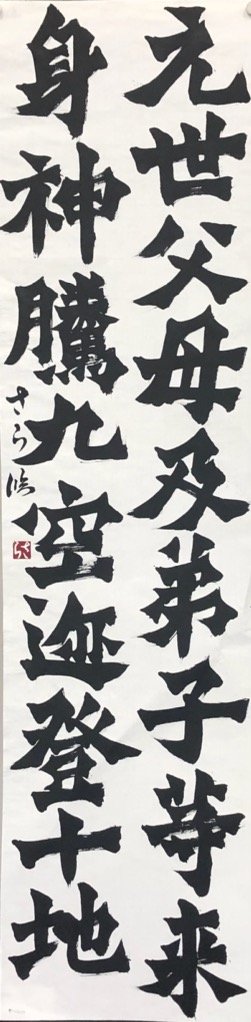 元世父母及弟子等来
身神騰九空迹登十地
さら臨